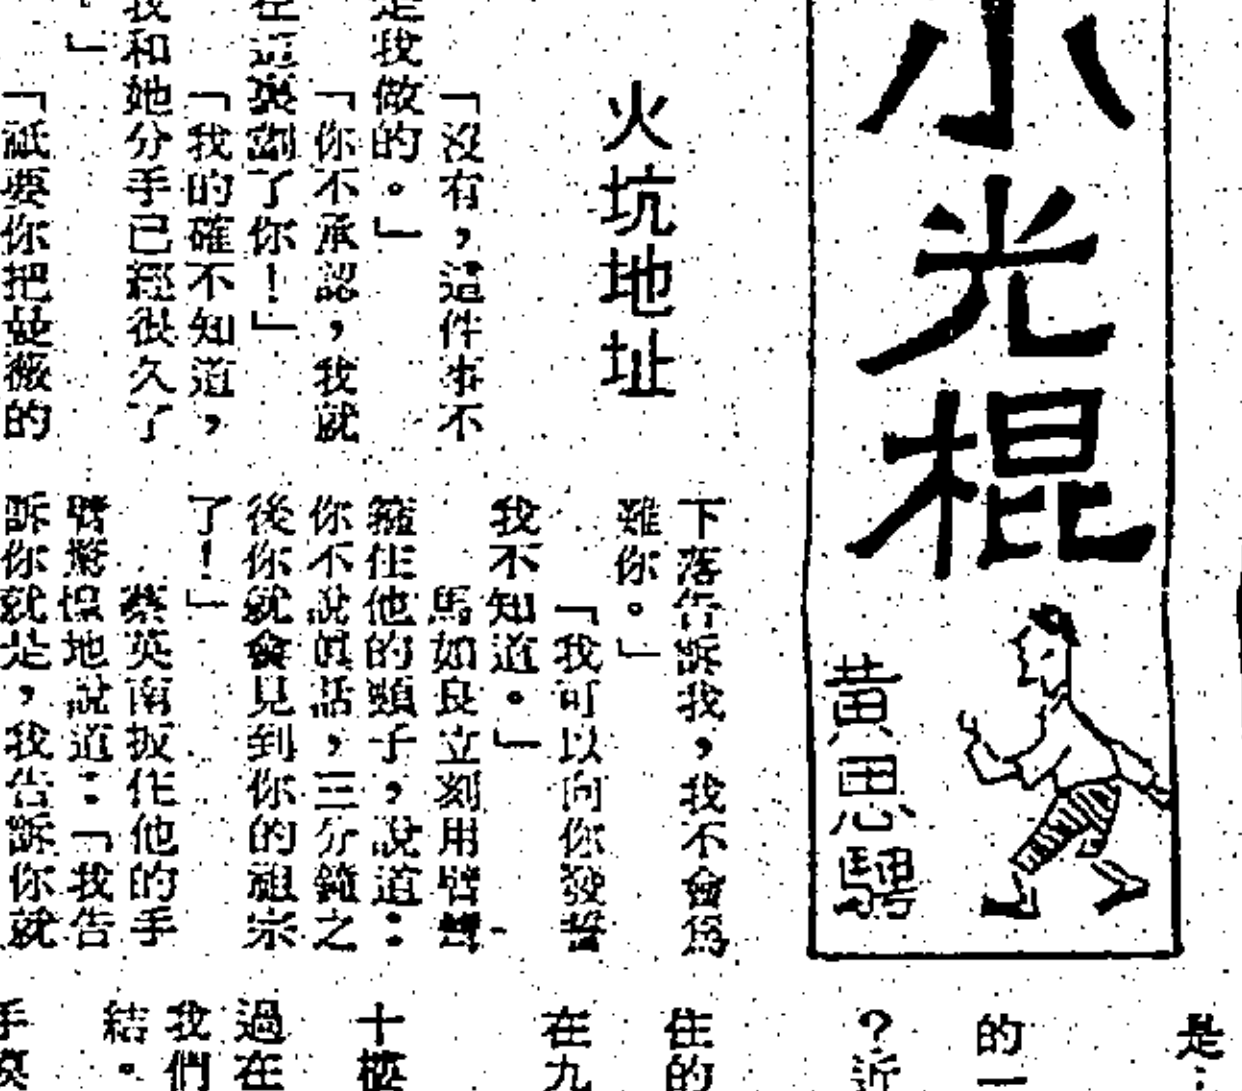 小光棍
黃思騁
火坑地址
「沒有，這件事不
是我做的。」
「你不承認，我就
在這裏劏了你！」
「我的確不知道，
我和她分手已經很久了
。」
「祇要你把曼薇的
下落告訴我，我不會爲
難你。」
「我可以向你發誓
我不知道。」
馬如良立刻用臂彎
箍住他的頸子，說道：
你不說眞話，三分鐘之
後你就會見到你的祖宗
了！」
蔡英南扳住他的手
臂驚惶地說道：「我告
訴你就是，我告訴你就
是：
的一
？近
住的
在九
十樓
過在
我們
結。
手